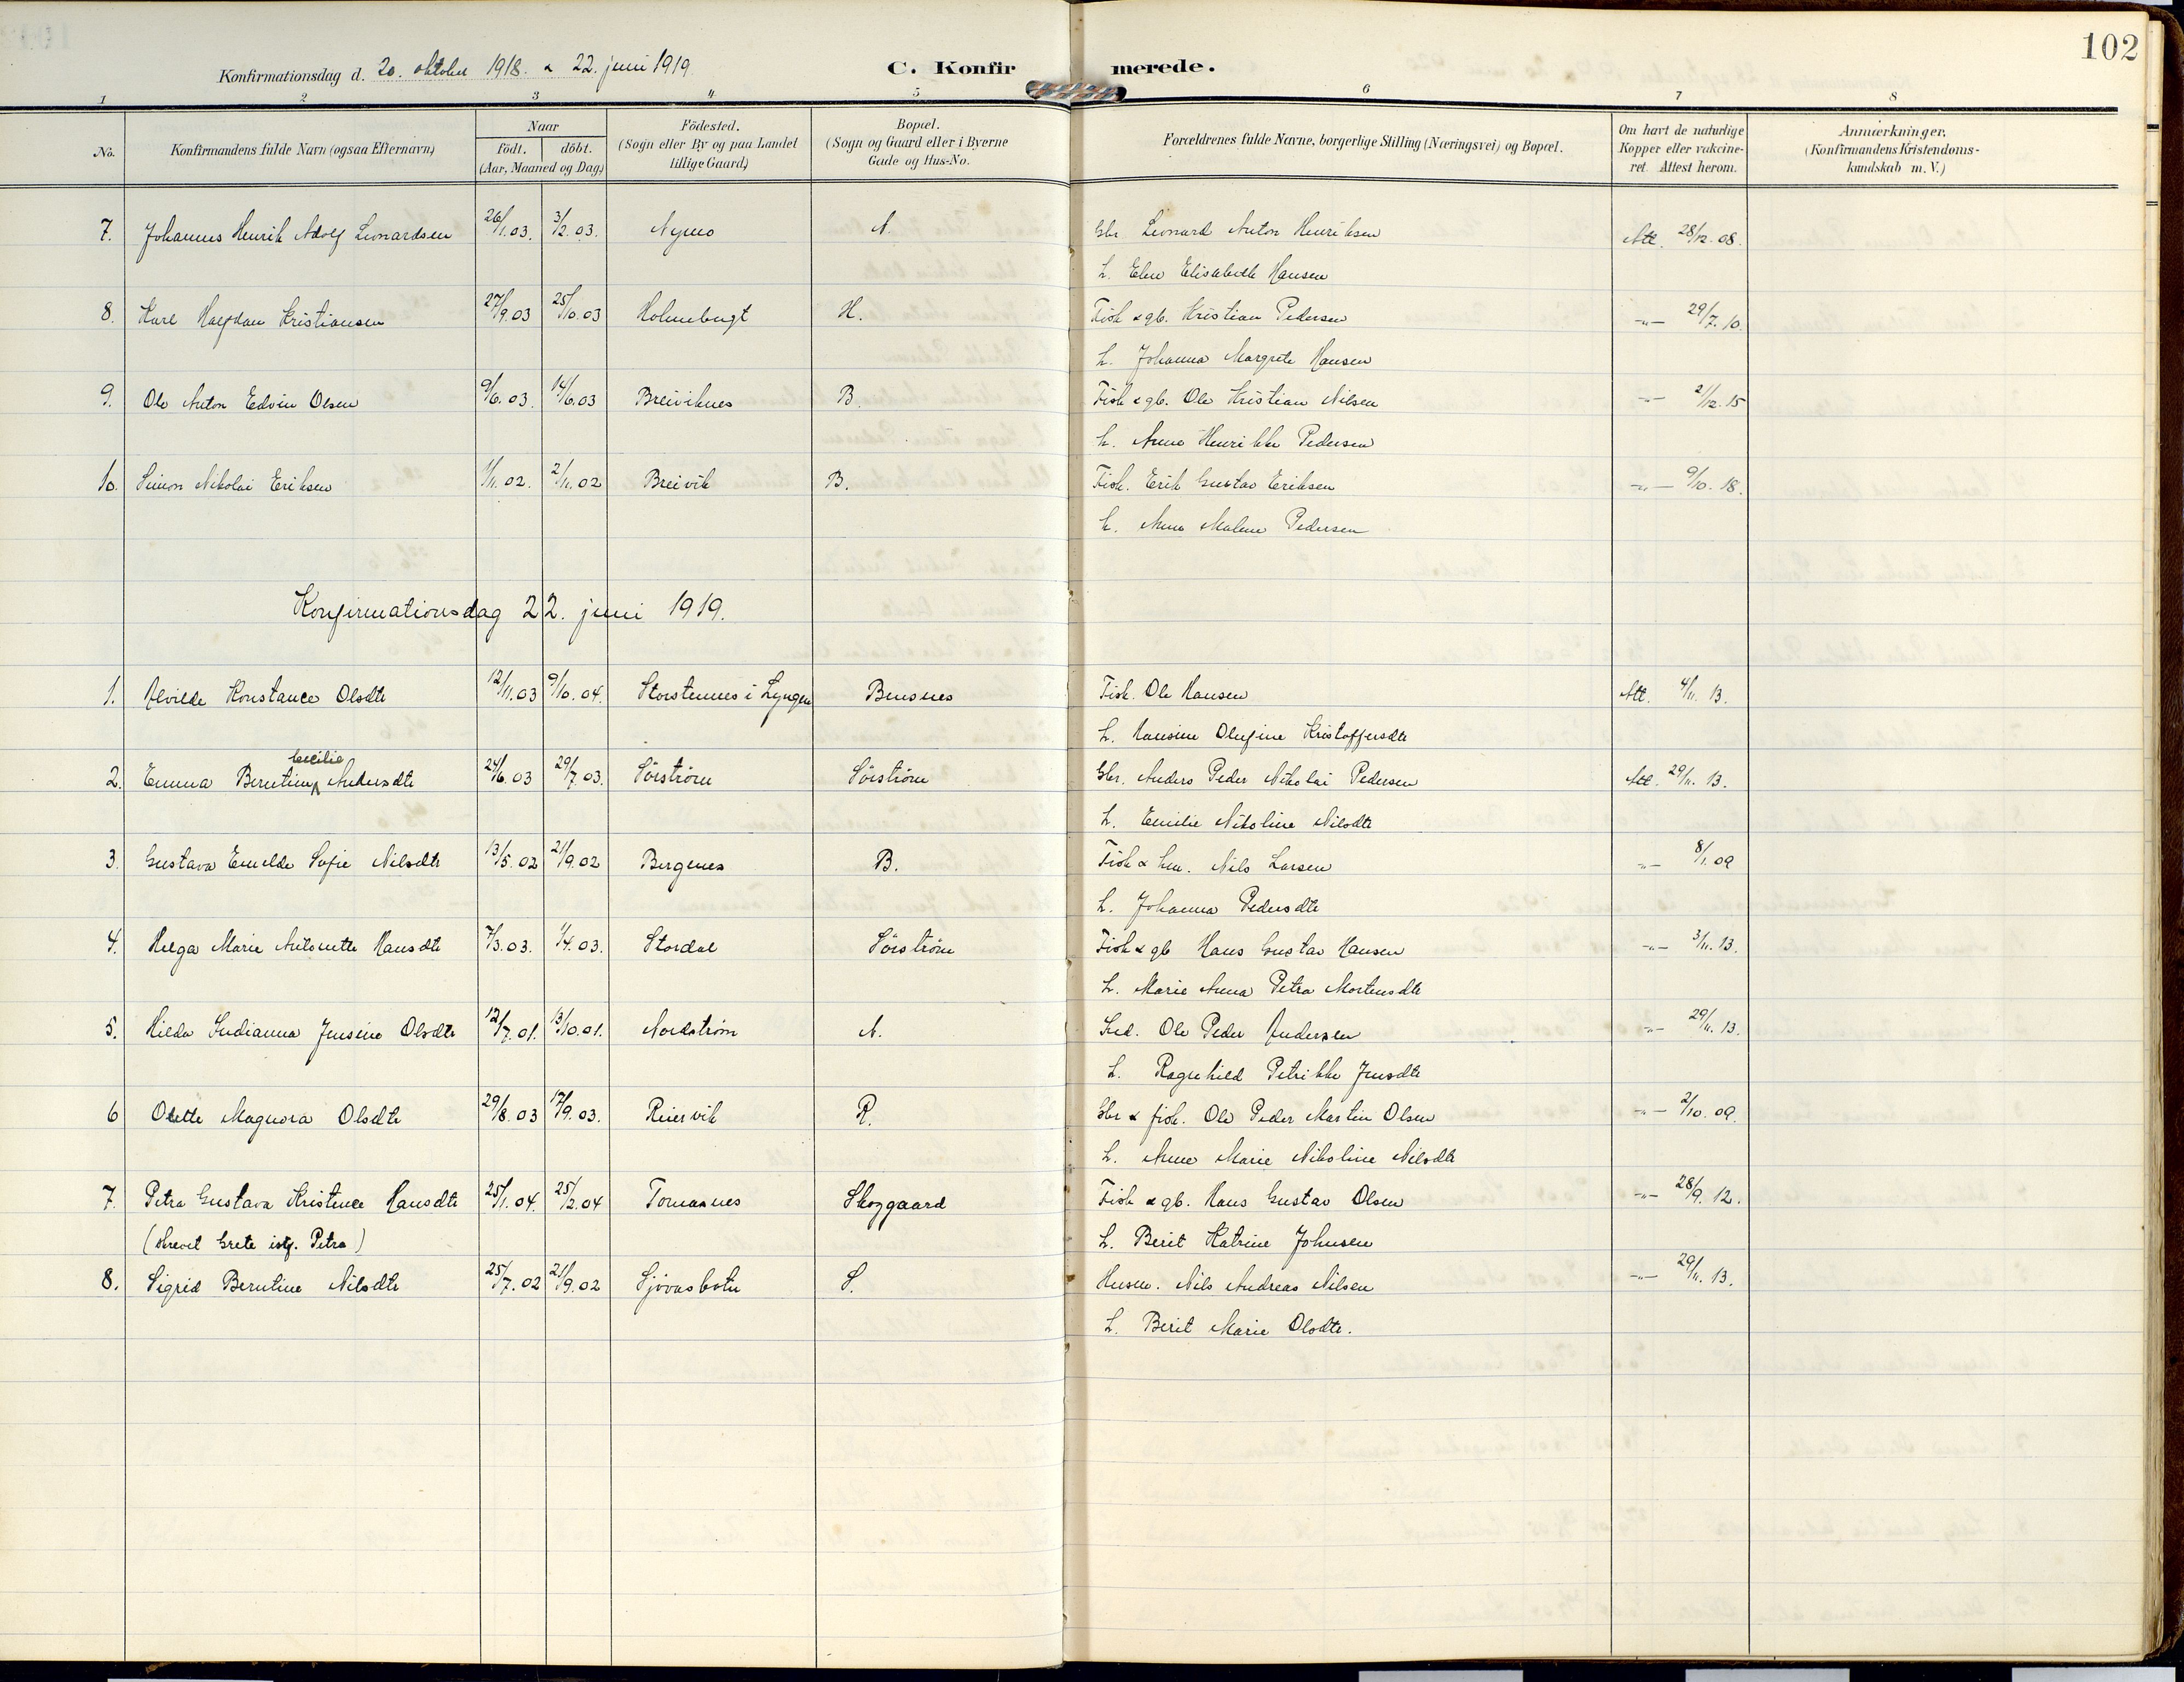 102
Konfirmationsdag d. 20. oktober 1918. & 22. juni 1919
C. Konfirmerede.
1 2 3 4 5 6 7 8
No. Konfirmandens fulde Navn (ogsaa Efternavn) Naar födt. döbt. (Aar, Maaned og Dag) Födested. (Sogn eller By og paa Landet tillige Gaard) Bopæl. (Sogn og Gaard eller i Byerne Gade og Hus-No. Forældrenes fulde Navne, borgerlige Stilling (Næringsvei) og Bopæl. Om havt de naturlige Kopper eller vakcineret. Attest herom. Anmærkninger. (Konfirmandens Kristendomskundskab m. V.)
7. Johannes Henrik Adolf Leonardsen 26/1.03. 3/2.03. Nymo N. Gbr. Leonard Anton Henriksen Att. 28/12.08.
h. Elen Elisabeth Hansen
8. Karl Halfdan Kristiansen 27/9.03 25/10.03 Holmebugt H. Fisk & gb. Kristian Pedersen -"- 29/7.10.
h. Johanna Margrete Hansen
9. Ole Anton Edvin Olsen 9/6.03. 14/6.03 Breiviknes B. Fisk & gb. Ole Kristian Nilsen -"- 2/12.15
h. Anne Henrikke Pedersen
10. Simon Nikolai Eriksen 1/11.02. 2/11.02 Breivik B. Fisk. Erik Gustav Eriksen -"- 9/10.18.
h. Anna Malene Pedersen
Konfirmationsdag 22. juni 1919.
1. Alvilde Konstance Olsdtr 12/11.03 9/10.04. Storstennes i Lyngen Bensnes Fisk. Ole Hansen Att. 4/11.13.
h. Hansine Olufine Kristoffersdtr
Cecilie
2. Emma Berntine Andersdtr 24/6.03 29/7.03. Sörström Sörström Gbr. Anders Peder Nikolai Pedersen Att. 29/11.13.
h. Emilie Nikoline Nilsdtr
3. Gustava Emelde Sofie Nilsdtr 13/5.02 21/9.02 Bergenes B. Fisk & hm. Nils Larsen -"- 8/1.09
h. Johanna Pedersdtr
4. Helga Marie Antonette Hansdtr 7/3.03. 1/4.03. Stordal Sörström Fisk & gb Hans Gustav Hansen -"- 3/11.13.
h. Marie Anna Petra Mortensdtr
5. Hilda Indianna Jensine Olsdtr 12/7.01. 13/10.01. Nordström N. Ind. Ole Peder Andersen -"- 29/11.13.
h. Ragnhild Petrikke Jensdtr
6 Olette Magnora Olsdtr 29/8.03 17/9.03. Reiervik R. Gbr & fisk. Ole Peder Martin Olsen -"- 2/10.09.
h. Anne Marie Nikoline Nilsdtr
7. Petra Gustava Kristence Hansdtr 25/1.04. 25/2.04 Tomasnes Skoggaard Fisk & gb. Hans Gustav Olsen -"- 28/9.12.
(skrevet Grete istf. Petra) h. Berit Katrine Johnsen
8. Sigrid Berntine Nilsdtr 25/7.02 21/9.02 Sjövasbotn S. Husm. Nils Andreas Nilsen -"- 29/11.13.
h. Berit Marie Olsdtr.